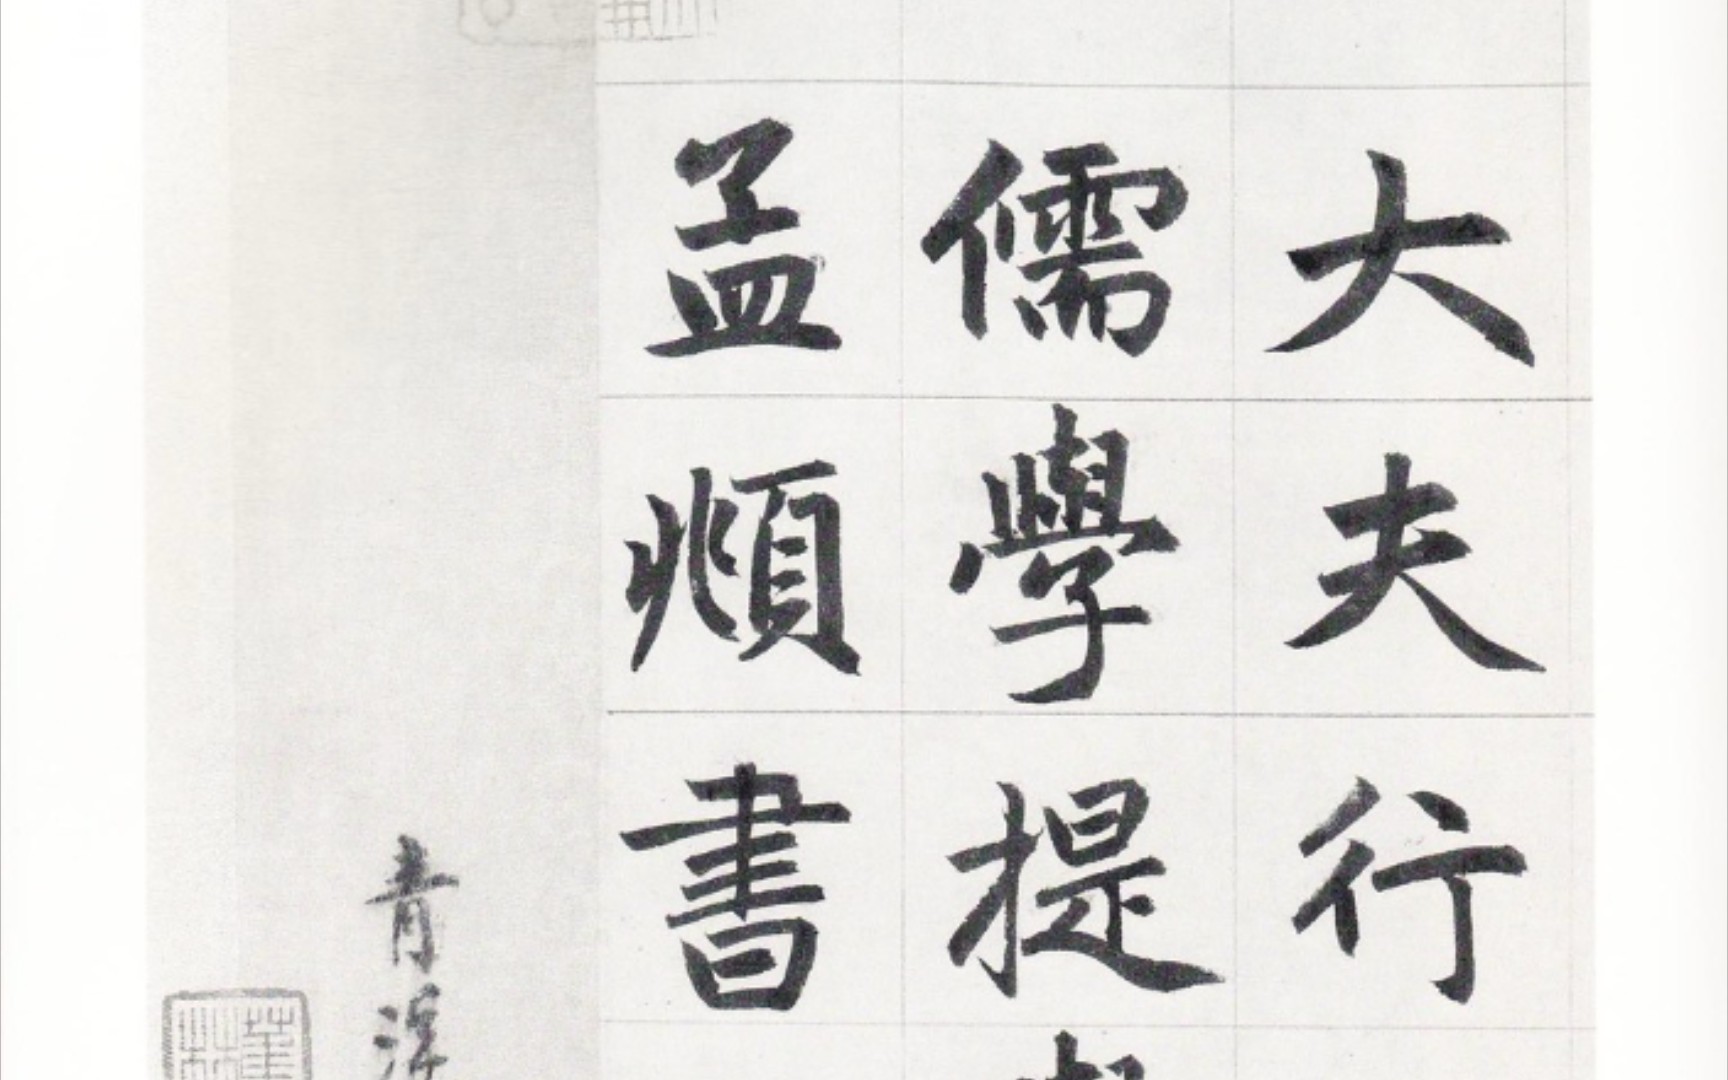 大夫行
儒學提
孟頫書
青浮